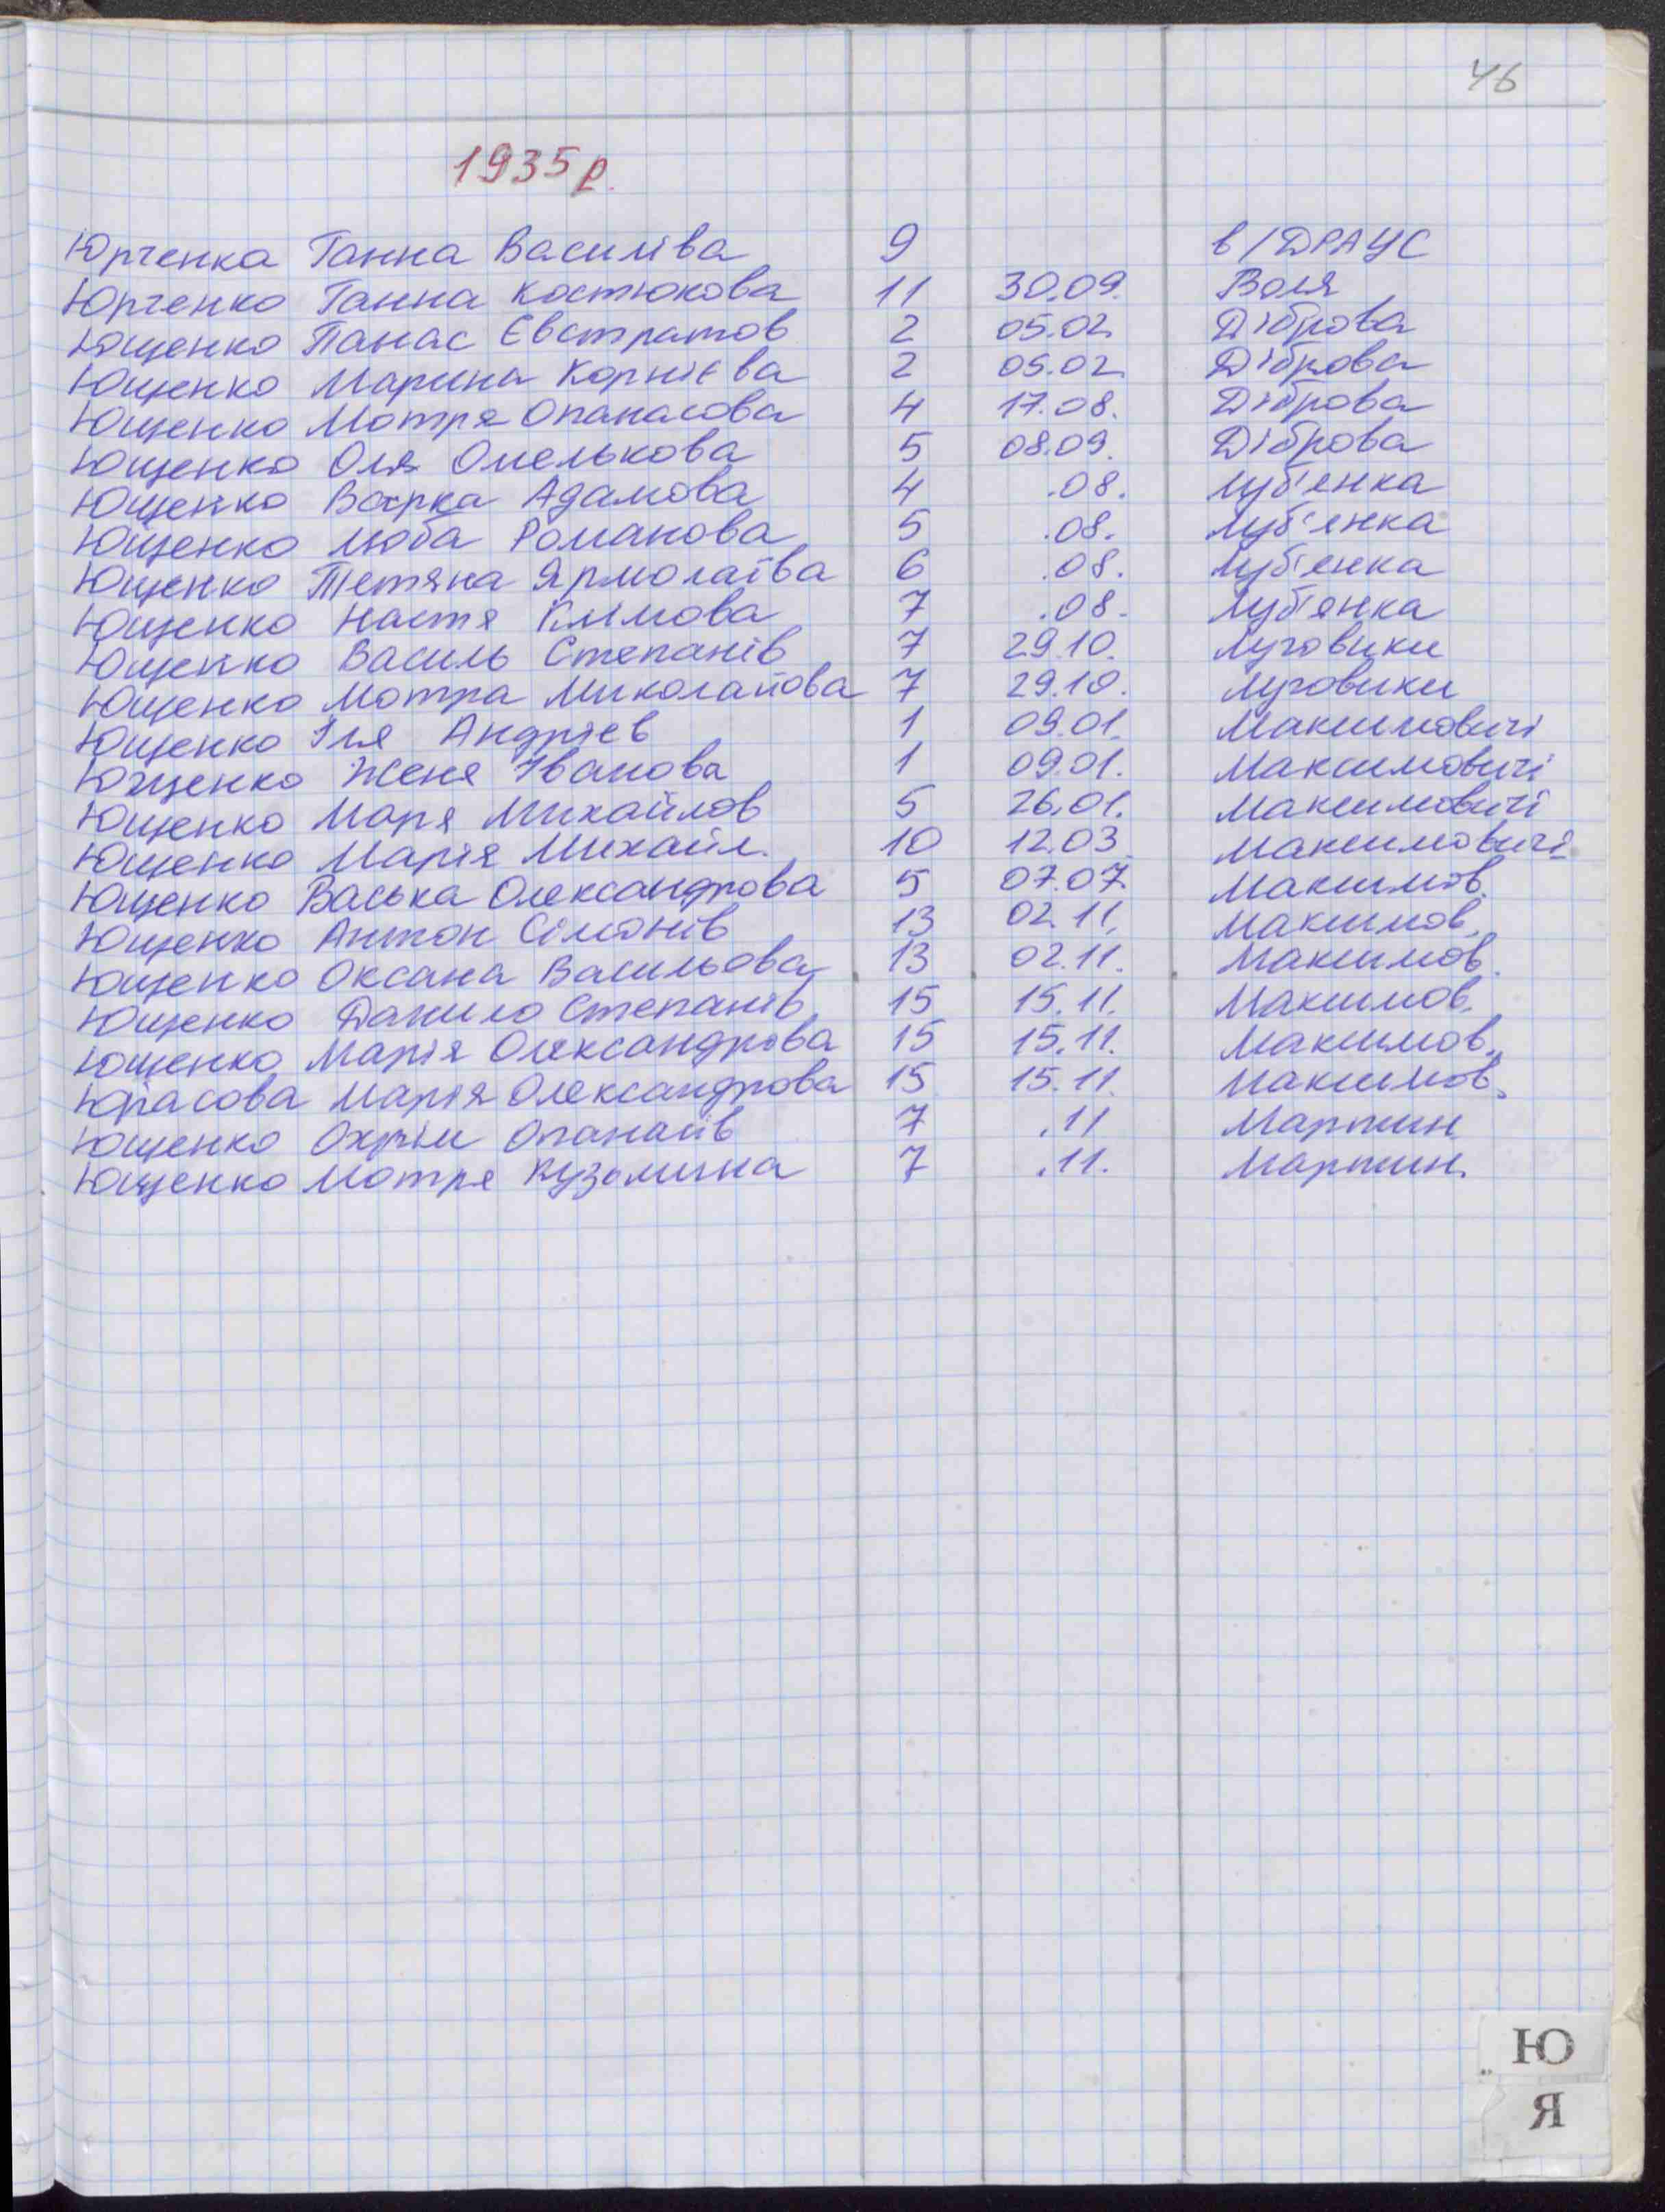 46
1935 р.
Юрченка Ганна Василіва 9 в/ДРАУС
Юрченко Ганна Костюкова 11 30.09. Воля
Ющенко Панас Євстратов 2 05.02. Діброва
Ющенко Марина Корнієва 2 05.02. Діброва
Ющенко Мотря Опанасова 4 17.08. Діброва
Ющенко Оля Омелькова 5 08.09. Діброва
Ющенко Варка Адамова 4 .08. Луб'енка
Ющенко Люба Романова 5 .08. Луб'енка
Ющенко Тетяна Ярмолаїва 6 .08. Луб'енка
Ющенко Настя Клімова 7 .08. Луб'янка
Ющенко Василь Степанів 7 29.10. Луговики
Ющенко Мотра Миколайова 7 29.10. Луговики
Ющенко Іля Андрієв 1 09.01. Максимовичі
Ющенко Женя Іванова 1 09.01. Максимовичі
Ющенко Маря Михайлов 5 26.01. Максимовичі
Ющенко Марія Михайл. 10 12.03 Максимовичі
Ющенко Васька Олександрова 5 07.07. Максимов.
Ющенко Антон Сімонів 13 02.11. Максимов.
Ющенко Оксана Васильова 13 02.11. Максимов.
Ющенко Данило Степанів 15 15.11. Максимов.
Ющенко Марія Олександрова 15 15.11. Максимов.
Юрасова Марія Олександрова 15 15.11. Максимов.
Ющенко Охрім Опанаів 7 .11 Мартин
Ющенко Мотря Кузьмина 7 .11. Мартин.
Ю
Я